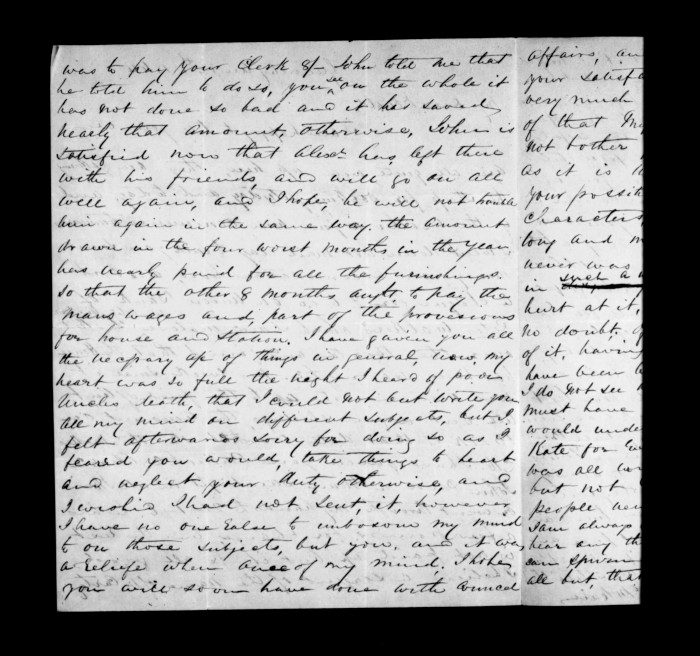 was to pay your Clerk & John told me that
he told him to do so, you see on the whole it
has not done so bad and it has saved
nearly that amount, otherwise, John is
satisfied now that Alexr has left there
with his friends, and will go on all
well again, and I hope, he will not trouble
him again in the same way. the amount
drawn in the four worst months in the year,
has nearly paid for all the furnishings.
So that the other 8 months aught to pay the
mans wages and, part of the provisions
for house and Station. I have given you all
the of things in general, now, my
heart was so full the night I heard of poor
Uncles death, that I could not but write you
all my mind on different subjects, but I
felt afterwards sorry for doing so as I
feared you would, take things to heart
and neglect your duty otherwise, and
I wished I had not sent, it, however,
I have no one Ealse to unbosom my mind
to on those subjects, but you, and it was
a Reliefe when of my mind. I hope
you will soon have done with Council
affairs, an
your satisfa
very much
of that
not bother
as it is
your
Characters
long and m
never was
in such a
hurt at it,
no doubt,
of it, having
have been
I do not see
must have
would unde
Kate for
was all
but not
people nev
I am always
hear any th
can
all but, that